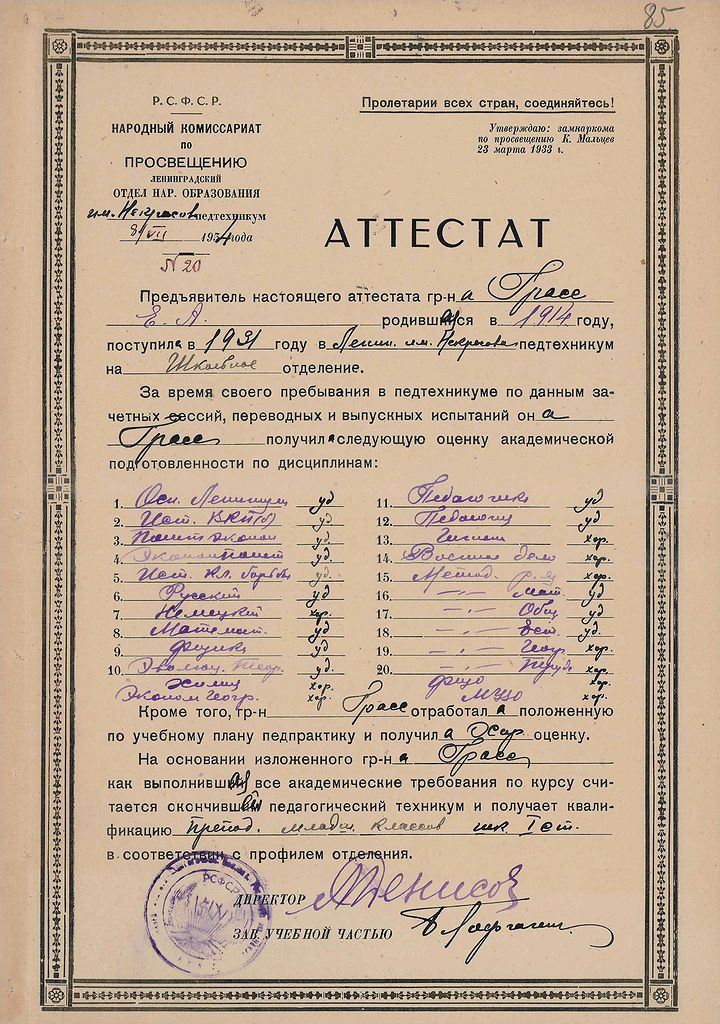 85
Р. С. Ф. С. Р.
НАРОДНЫЙ КОМИССАРИАТ
по
ПРОСВЕЩЕНИЮ
ЛЕНИНГРАДСКИЙ
ОТДЕЛ НАР. ОБРАЗОВАНИЯ
им. Некрасов педтехникум
8/VII 1934 года
N 20
Пролетарии всех стран, соединяйтесь!
Утверждаю: замнаркома
по просвещению К. Мальцев
23 марта 1933 г.
АТТЕСТАТ
Предъявитель настоящего аттестата гр-на Грасс
Е. А. родившаяся в 1914 году,
поступила в 1931 году в Ленин. им. Некрасова педтехникум
на Школьное отделение.
За время своего пребывания в педтехникуме по данным за-
четных сессий, переводных и выпускных испытаний он а
Грасс получил а следующую оценку академической
подготовленности по дисциплинам:
1. Осн. Ленинизм уд
2. Ист. ВКП(б) уд.
3. Полит эконом уд.
4. Эконополит уд
5. Ист. кл. борьбы уд.
6. Русский уд
7. Немецкий хор.
8. Математ. уд
9. Физика уд
10. Эволюц. теор. уд.
Химия хор.
Эконом геогр. хор.
11. Педагогика уд
12. Педология уд
13. Гигиена хор.
14. Военное дело хор.
15. Метод. р. яз хор.
16. —„— мат. уд
17. —„— Общ уд.
18. —„— Ест. уд.
19. —„— Геогр. хор.
20. —„— Труда хор.
Физо хор.
Музо хор.
Кроме того, гр-н Грасс отработал а положенную
по учебному плану педпрактику и получил а Хор оценку.
На основании изложенного гр-н а Грасс
как выполнивший ая все академические требования по курсу счи-
тается окончившей педагогический техникум и получает квали-
фикацию препод. младш. классов шк I ст.
в соответствии с профилем отделения.
РСФСР
ДИРЕКТОР Денисов
ЗАВ. УЧЕБНОЙ ЧАСТЬЮ